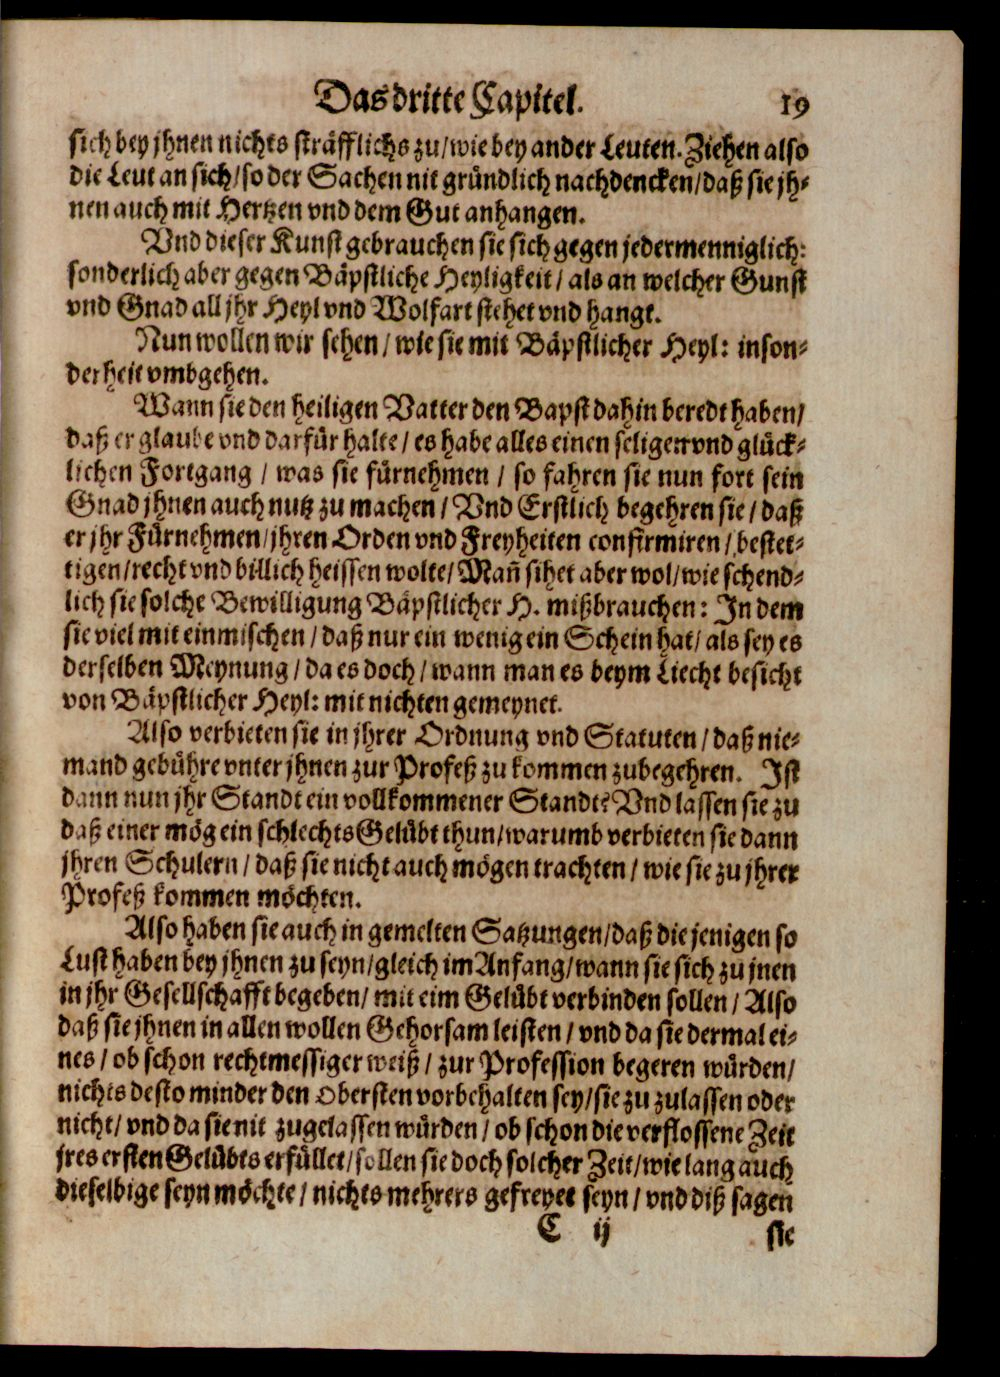 Das dritte Capitel. 19
sich bey jhnen nichts sträfflichs zu/ wie bey ander Leuten. Ziehen also
die Leut an sich/ so der Sachen nit gründlich nachdencken/ daß sie jh⸗
nen auch mit Hertzen vnd dem Gut anhangen.
Vnd dieser Kunst gebrauchen sie sich gegen jedermenniglich:
sonderlich aber gegen Bäpstliche Heyligkeit/ als an welcher Gunst
vnd Gnad all jhr Heyl vnd Wolfart stehet vnd hangt.
Nun wollen wir sehen/ wie sie mit Bäpstlicher Heyl: inson⸗
derheit vmbgehen.
Wann sie den heiligen Vatter den Bapst dahin beredt haben/
daß er glaube vnd darfür halte/ es habe alles einen seligen vnd glück⸗
lichen Fortgang / was sie fürnehmen / so fahren sie nun fort sein
Gnad jhnen auch nutz zu machen/ Vnd Erstlich begehren sie/ daß
er jhr Fürnehmen/ jhren Orden vnd Freyheiten confirmiren/ bestet⸗
tigen/ recht vnd billich heissen wolte/ Mañ sihet aber wol/ wie schend⸗
lich sie solche Bewilligung Bäpstlicher H. mißbrauchen: In dem
sie viel mit einmischen/ daß nur ein wenig ein Schein hat/ als sey es
derselben Meynung/ da es doch/ wann man es beym Liecht besicht
von Bäpstlicher Heyl: mit nichten gemeynet.
Also verbieten sie in jhrer Ordnung vnd Statuten/ daß nie⸗
mand gebühre vnter jhnen zur Profeß zu kommen zubegehren. Ist
dann nun jhr Standt ein vollkommener Standt? Vnd lassen sie zu
daß einer mög ein schlechts Gelübt thun/ warumb verbieten sie dann
jhren Schulern/ daß sie nicht auch mögen trachten/ wie sie zu jhrer
Profeß kommen möchten.
Also haben sie auch in gemelten Satzungen/ daß die jenigen so
Lust haben bey jhnen zu seyn/ gleich im Anfang/ wann sie sich zu jnen
in jhr Gesellschafft begeben/ mit eim Gelübt verbinden sollen/ Also
daß sie jhnen in allen wollen Gehorsam leisten/ vnd da sie dermal ei⸗
nes/ ob schon rechtmessiger weiß/ zur Profession begeren würden/
nichts desto minder den Obersten vorbehalten sey/ sie zu zulassen oder
nicht/ vnd da sie nit zugelassen würden/ ob schon die verflossene Zeit
jres ersten Gelübts erfüllet/ sollen sie doch solcher Zeit/ wie lang auch
dieselbige seyn möchte/ nichts mehrers gefreyet seyn/ vnd diß sagen
C ij sie